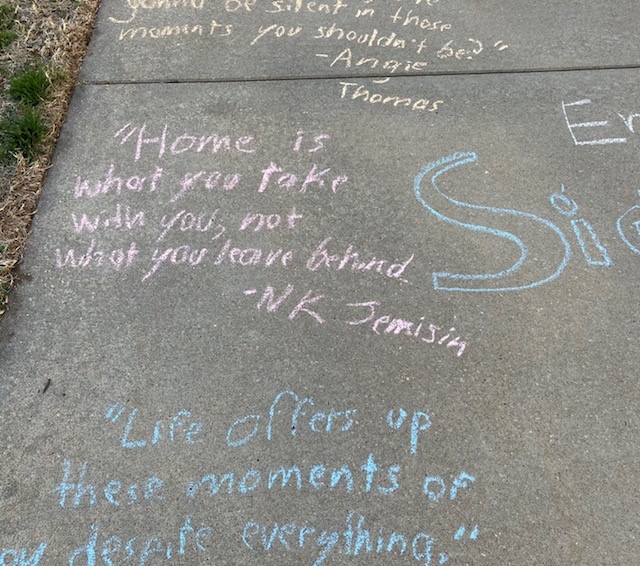 gonna be silent in those
moments you shouldn't be?"
-Angie
Thomas
En
"Home is
what you take
with you, not
what you leave behind
-NK Jemisin
Si
"Life offers up
these moments of
despite everything."